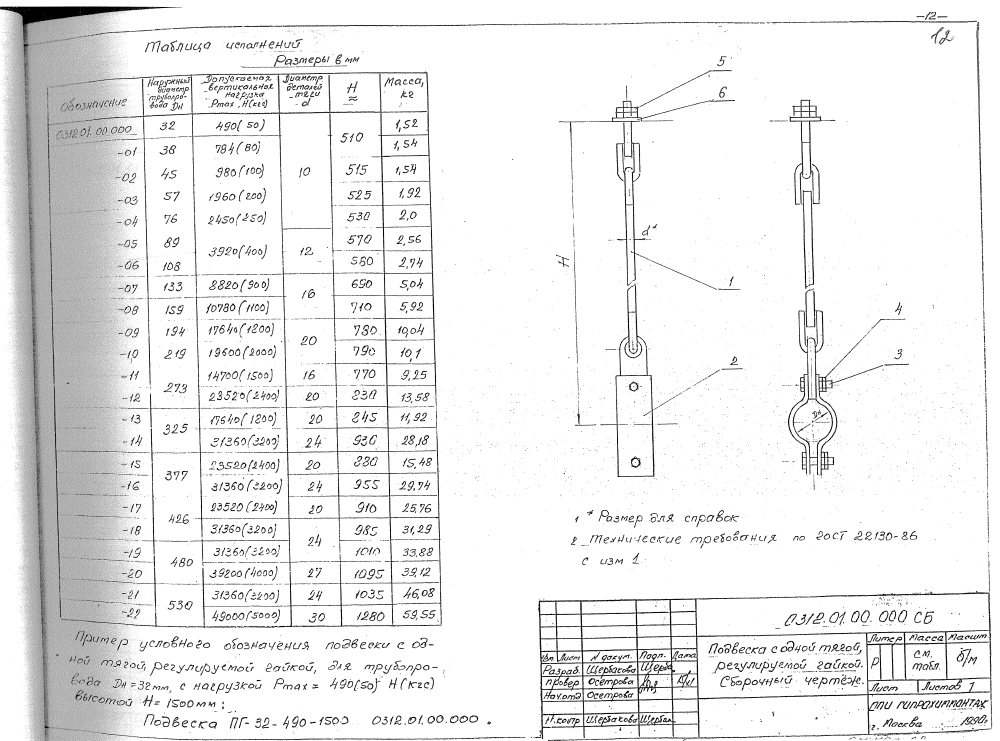 -12-
12
Таблица исполнений
Размеры в мм
Обозначение | Наружный диаметр трубопровода Dн | Допускаемая вертикальная нагрузка Pmax, Н(кгс) | Диаметр деталей тяги d | H ≈ | Масса, кг
0312.01.00.000 | 32 | 490(50) | 10 | 510 | 1,52
-01 | 38 | 784(80) | 1,54
-02 | 45 | 980(100) | 515 | 1,54
-03 | 57 | 1960(200) | 525 | 1,92
-04 | 76 | 2450(250) | 530 | 2,0
-05 | 89 | 3920(400) | 12 | 570 | 2,56
-06 | 108 | 580 | 2,74
-07 | 133 | 8820(900) | 16 | 690 | 5,04
-08 | 159 | 10780(1100) | 710 | 5,92
-09 | 194 | 17640(1800) | 20 | 780 | 10,04
-10 | 219 | 19600(2000) | 790 | 10,1
-11 | 273 | 14700(1500) | 16 | 770 | 9,25
-12 | 23520(2400) | 20 | 830 | 13,58
-13 | 325 | 17640(1800) | 20 | 845 | 11,92
-14 | 31360(3200) | 24 | 930 | 28,18
-15 | 377 | 23520(2400) | 20 | 880 | 15,48
-16 | 31360(3200) | 24 | 955 | 29,74
-17 | 426 | 23520(2400) | 20 | 910 | 25,76
-18 | 31360(3200) | 24 | 985 | 31,29
-19 | 480 | 31360(3200) | 1010 | 33,88
-20 | 39200(4000) | 27 | 1095 | 39,12
-21 | 530 | 31360(3200) | 24 | 1035 | 46,08
-22 | 49000(5000) | 30 | 1280 | 59,55
Пример условного обозначения подвески с од-
ной тягой, регулируемой гайкой, для трубопро-
вода Dн=32мм, с нагрузкой Pmax = 490(50) Н(кгс)
высотой H= 1500мм:
Подвеска ПГ-32-490-1500 0312.01.00.000.
5
6
H
d*
1
2
4
3
Dн
1 * Размер для справок
2 Технические требования по ГОСТ 22130-86
с изм 1
0312.01.00.000 СБ
Подвеска с одной тягой,
регулируемой гайкой.
Сборочный чертёж.
Литер Масса Масшт.
Р см. табл. б/м
Лист Листов 1
ППИ Гипрохиммонтаж
г. Москва 1990г
Изм Лист N докум. Подп. Дата
Разраб. Щербакова Щерба
Провер Осетрова
Нач.отд Осетрова
Н.контр Щербакова Щербак